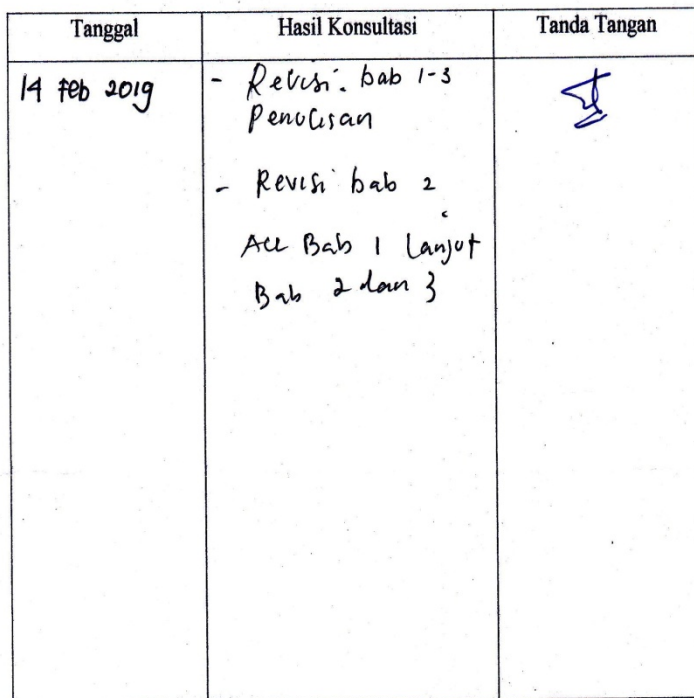 Tanggal Hasil Konsultasi Tanda Tangan
14 Feb 2019 - Revisi. bab 1-3
Penulisan
- Revisi bab 2
Acc Bab 1 Lanjut
Bab 2 dan 3